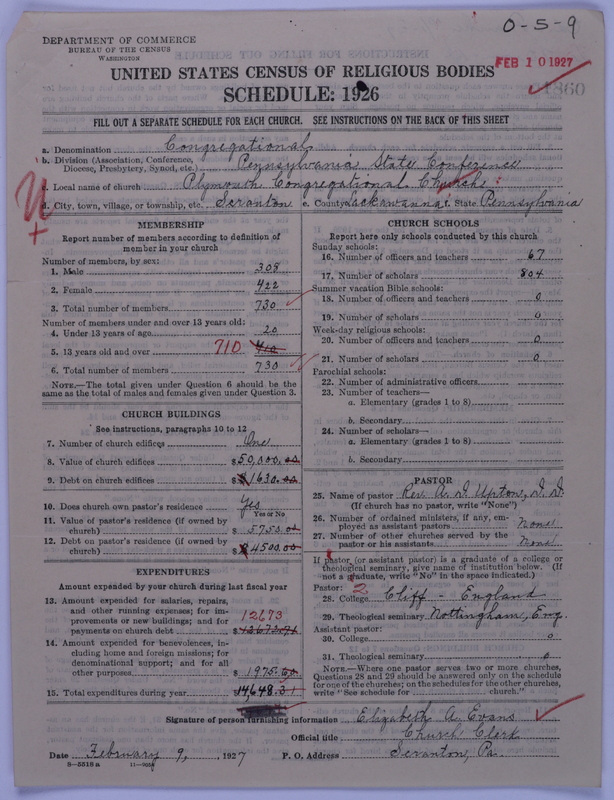 O-5-9
DEPARTMENT OF COMMERCE
BUREAU OF THE CENSUS
WASHINGTON
FEB 10 1927
UNITED STATES CENSUS OF RELIGIOUS BODIES
SCHEDULE: 1926
FILL OUT A SEPARATE SCHEDULE FOR EACH CHURCH. SEE INSTRUCTIONS ON THE BACK OF THIS SHEET
a. Denomination Congregational
b. Division (Association, Conference, Diocese, Presbytery, Synod, etc.) Pennsylvania State Conference
c. Local name of church Plymouth Congregational Church
d. City, town, village, or township, etc. Scranton e. County Lackawanna f. State Pennsylvania
MEMBERSHIP
Report number of members according to definition of
member in your church
Number of members, by sex:
1. Male 308
2. Female 422
3. Total number of members 730
Number of members under and over 13 years old:
4. Under 13 years of age 20
5. 13 years old and over 710 710
6. Total number of members 730
NOTE.—The total given under Question 6 should be the
same as the total of males and females given under Question 3.
CHURCH BUILDINGS
See instructions, paragraphs 10 to 12
7. Number of church edifices One
8. Value of church edifices $50,000.00
9. Debt on church edifices $1630.00
10. Does church own pastor's residence Yes
Yes or No
11. Value of pastor's residence (if owned by
church) $5750.00
12. Debt on pastor's residence (if owned by
church) $4500.00
EXPENDITURES
Amount expended by your church during last fiscal year
13. Amount expended for salaries, repairs,
and other running expenses; for im-
provements or new buildings; and for 12673
payments on church debt $12673.71
14. Amount expended for benevolences, in-
cluding home and foreign missions; for
denominational support; and for all
other purposes $1975.60
15. Total expenditures during year $14,648.31
CHURCH SCHOOLS
Report here only schools conducted by this church
Sunday schools:
16. Number of officers and teachers 67
17. Number of scholars 804
Summer vacation Bible schools:
18. Number of officers and teachers 0
19. Number of scholars 0
Week-day religious schools:
20. Number of officers and teachers 0
21. Number of scholars 0
Parochial schools:
22. Number of administrative officers
23. Number of teachers—
a. Elementary (grades 1 to 8)
b. Secondary
24. Number of scholars—
a. Elementary (grades 1 to 8)
b. Secondary
PASTOR
25. Name of pastor Rev. A. D. Upton, D. D.
(If church has no pastor, write "None")
26. Number of ordained ministers, if any, em-
ployed as assistant pastors None
27. Number of other churches served by the
pastor or his assistants None
If pastor (or assistant pastor) is a graduate of a college or
theological seminary, give name of institution below. (If
not a graduate, write "No" in the space indicated.)
Pastor: 2
28. College Cliff - England
29. Theological seminary Nottingham, Eng.
Assistant pastor:
30. College 0
31. Theological seminary 0
NOTE.—Where one pastor serves two or more churches,
Questions 28 and 29 should be answered only on the schedule
for one of the churches; on the schedules for the other churches,
write "See schedule for church."
Signature of person furnishing information Elizabeth A. Evans
Official title Church Clerk
Date February 9, 1927 P. O. Address Scranton, Pa.
8—5518 a